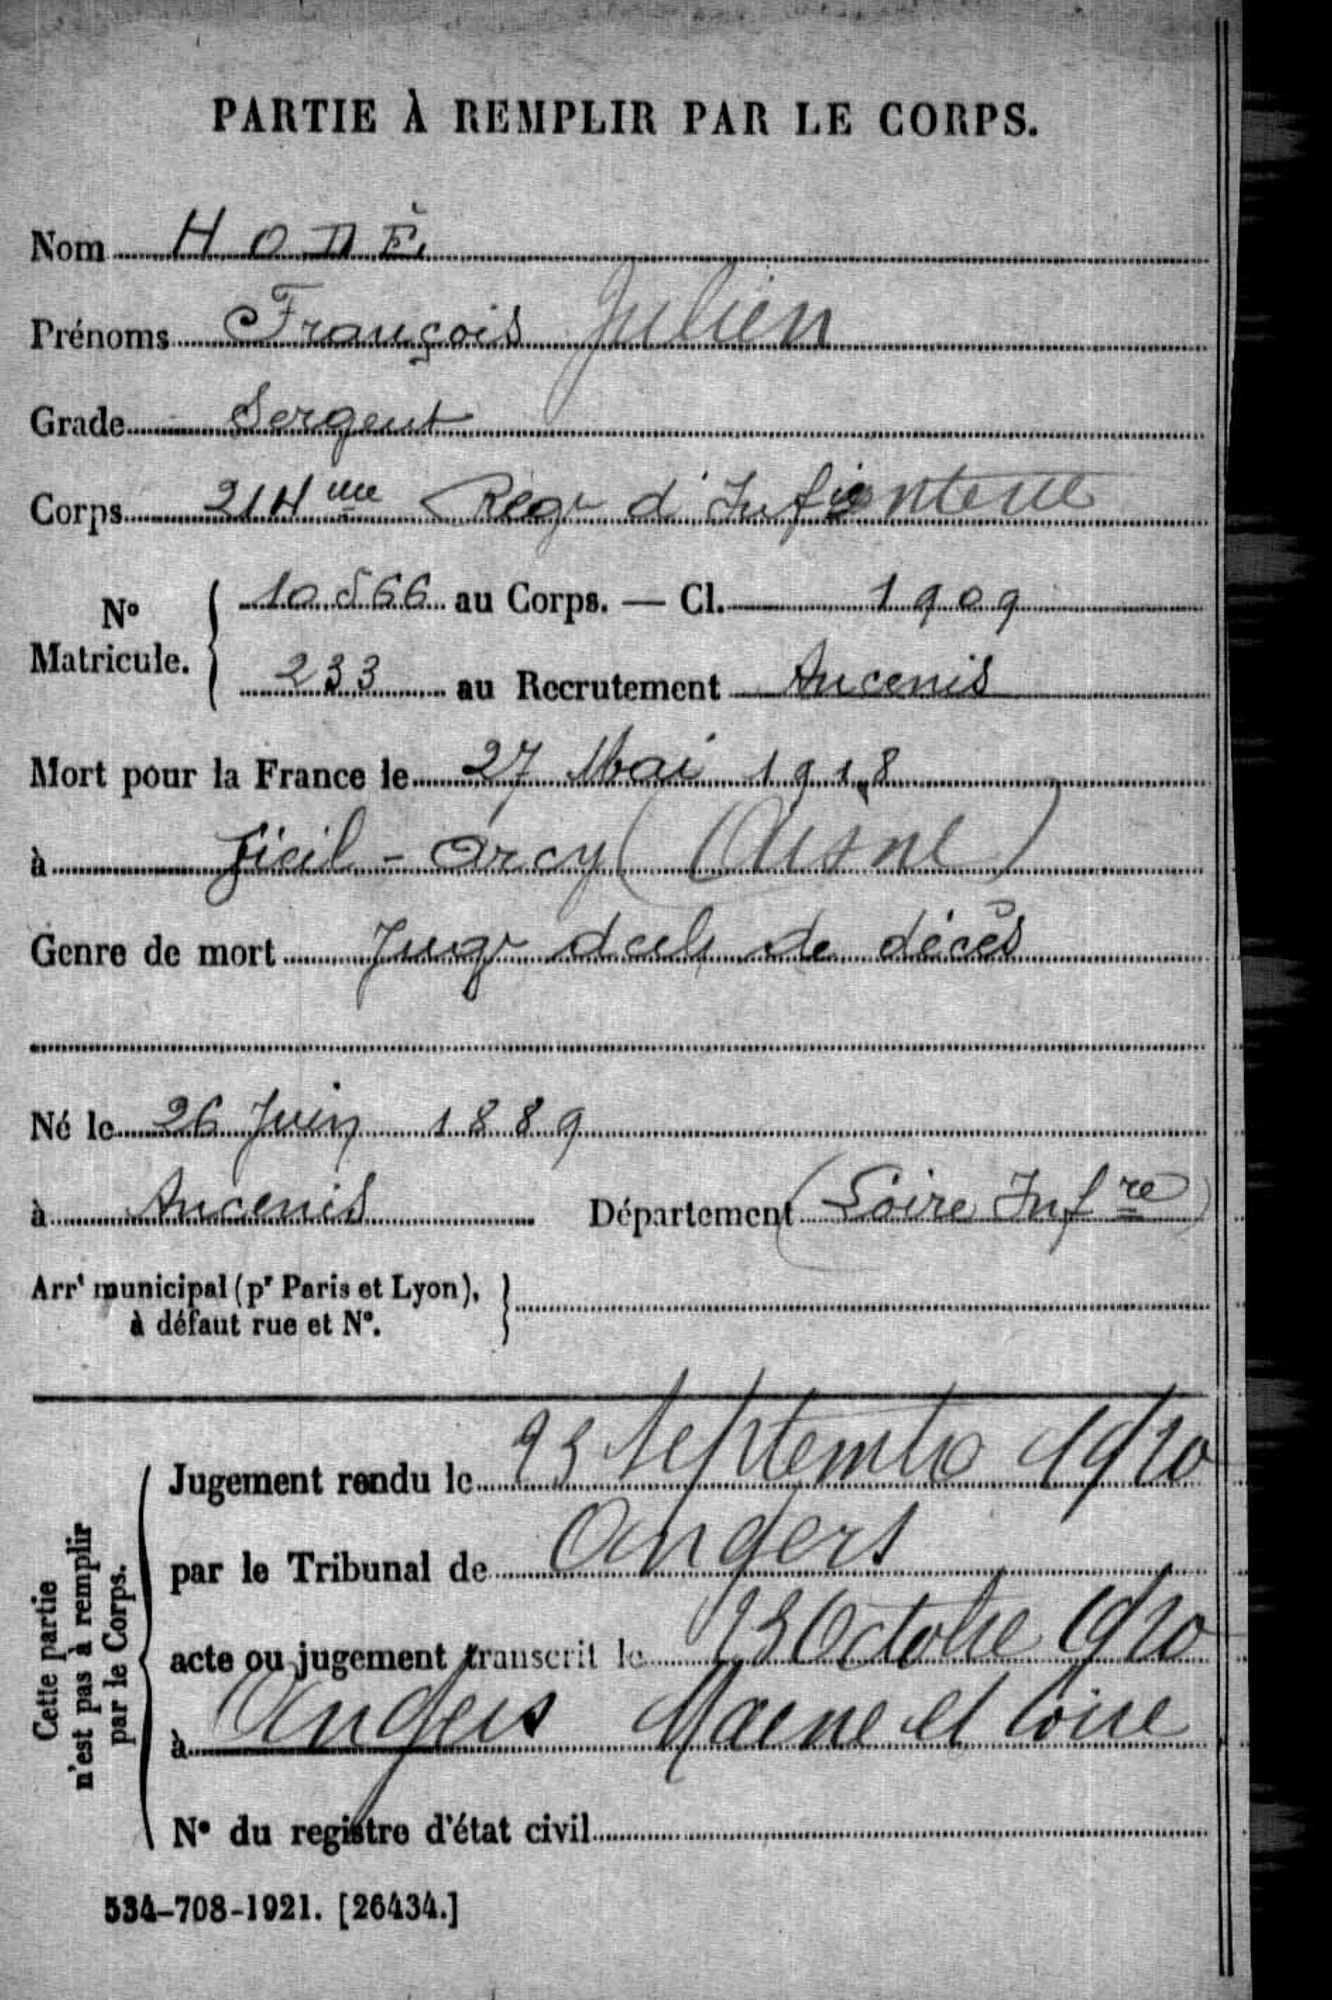 PARTIE À REMPLIR PAR LE CORPS.
Nom HODÉ
Prénoms François Julien
Grade Sergent
Corps 214eme Régt d'Infanterie
No Matricule. 10566 au Corps. — Cl. 1909
233 au Recrutement Ancenis
Mort pour la France le 27 Mai 1918
à -Arcy (Aisne)
Genre de mort Jugt décl. de décès
Né le 26 Juin 1889
à Ancenis Département (Loire Infre)
Arrt municipal (pr Paris et Lyon),
à défaut rue et No.
Cette partie
n'est pas à remplir
par le Corps.
Jugement rendu le 23 Septembre 1920
par le Tribunal de Angers
acte ou jugement transcrit le Octobre 1920
à Angers Maine et Loire
No du registre d'état civil
534-708-1921. [26434.]